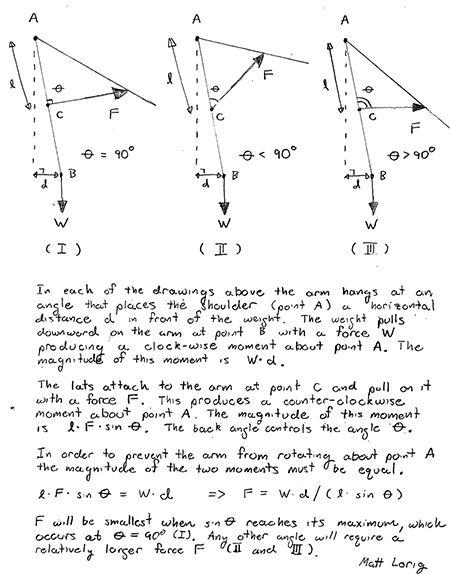 A A A
l θ F l θ F l θ F
C C C
θ = 90° θ < 90° θ > 90°
d B d B d B
W W W
(I) (II) (III)
In each of the drawings above the arm hangs at an
angle that places the shoulder (point A) a horizontal
distance d in front of the weight. The weight pulls
downward on the arm at point B with a force W
producing a clock-wise moment about point A. The
magnitude of this moment is W·d.
The lats attach to the arm at point C and pull on it
with a force F. This produces a counter-clockwise
moment about point A. The magnitude of this moment
is l·F·sin θ. The back angle controls the angle θ.
In order to prevent the arm from rotating about point A
the magnitude of the two moments must be equal.
l·F·sin θ = W·d => F = W·d/(l·sin θ)
F will be smallest when sin θ reaches its maximum, which
occurs at θ = 90° (I). Any other angle will require a
relatively larger force F (II and III).
Matt Lorig